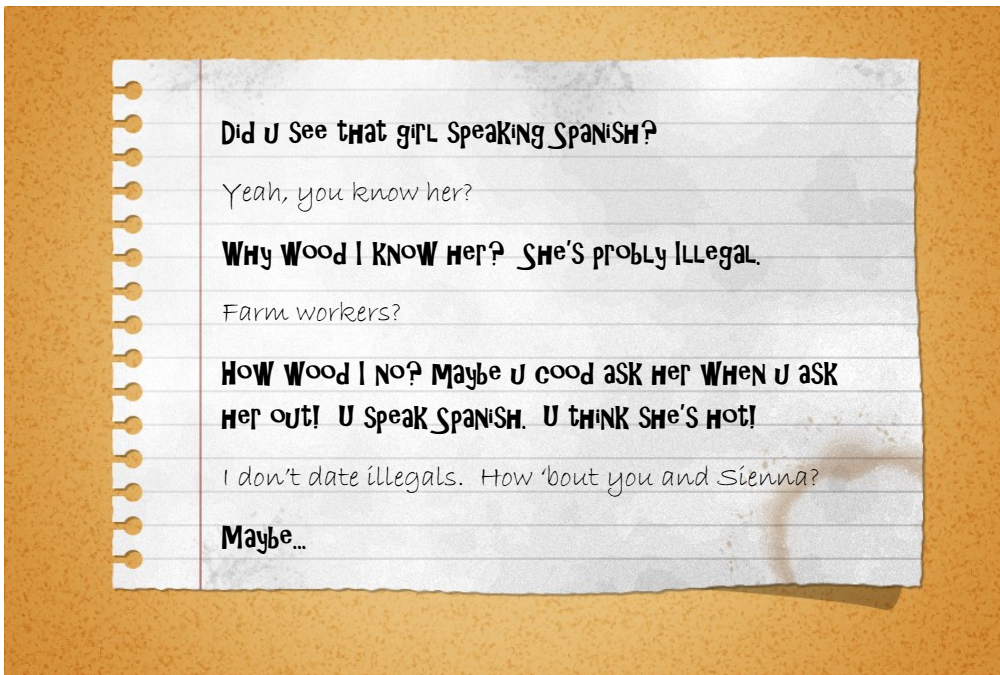 Did u see that girl speaking Spanish?
Yeah, you know her?
Why wood I know her?  She's probly illegal.
Farm workers?
How wood I no? Maybe u cood ask her when u ask
her out!  U speak Spanish.  U think she's hot!
I don't date illegals.  How 'bout you and Sienna?
Maybe...